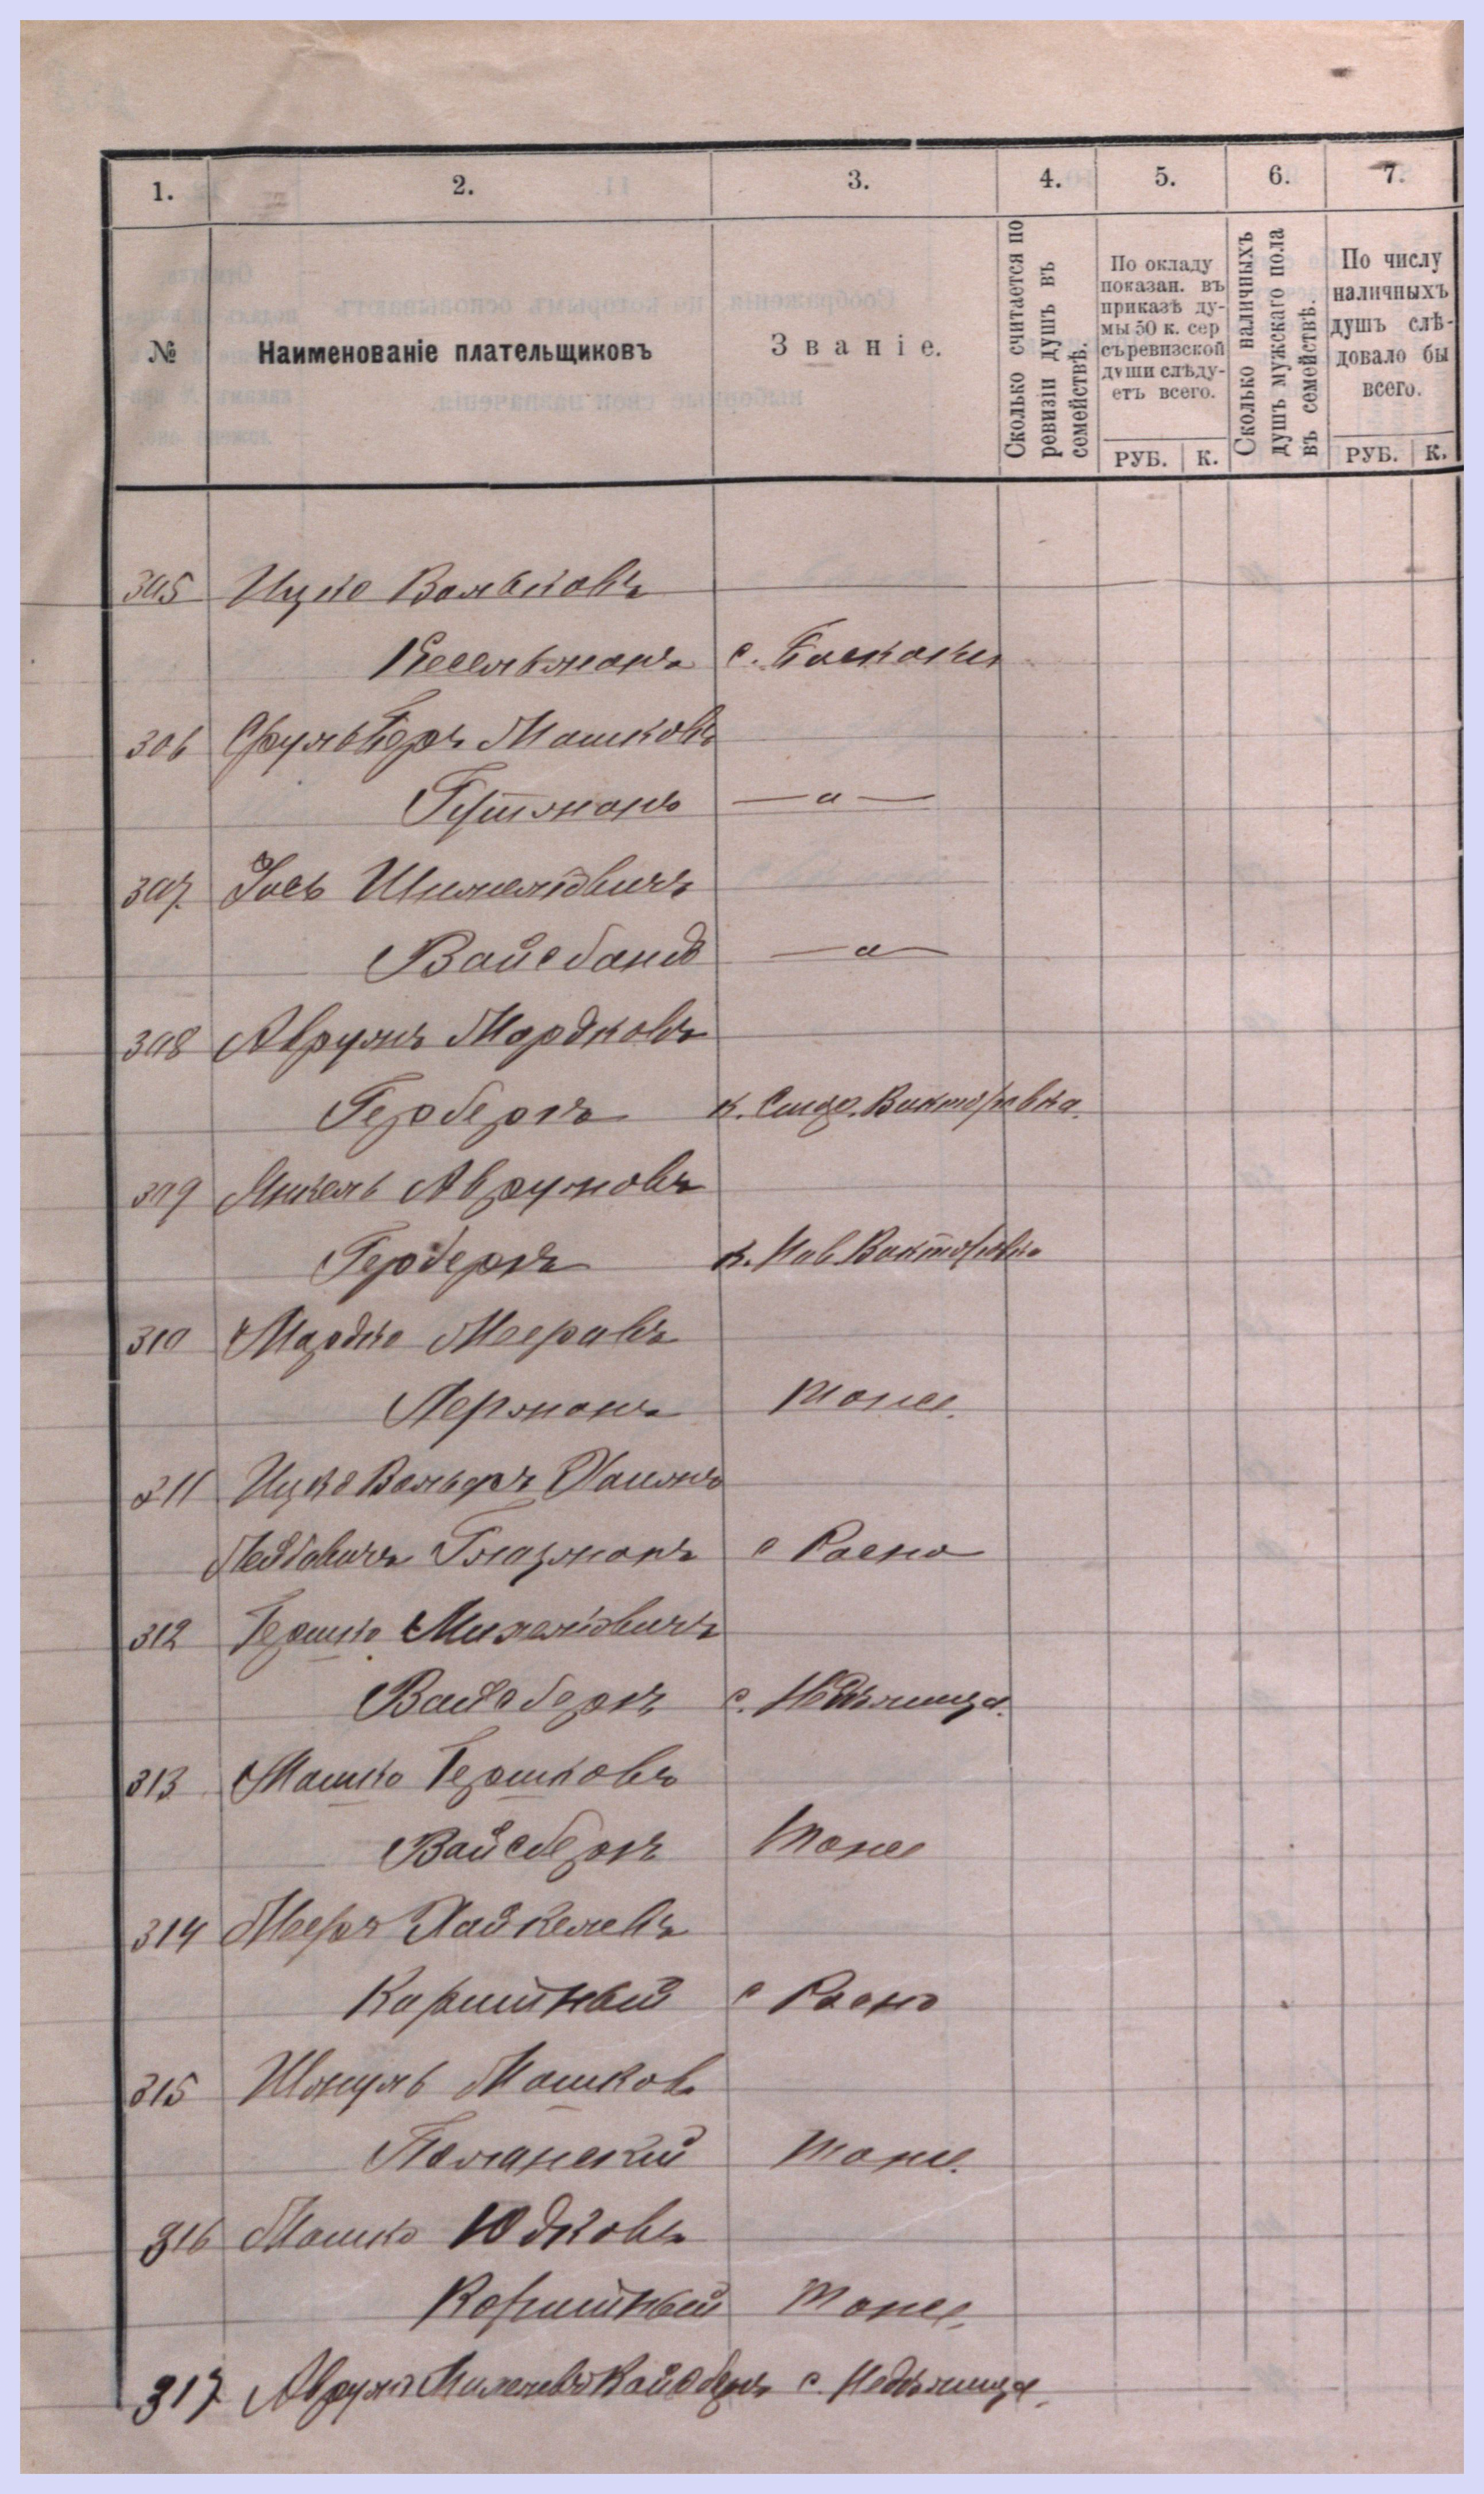 1. 2. 3. 4. 5. 6. 7.
№
Наименованіе плательщиковъ
Званіе.
Сколько считается по
ревизіи душъ въ
семействѣ.
По окладу
показан. въ
приказѣ ду-
мы 50 к. сер
съ ревизской
души слѣду-
етъ всего.
РУБ. К.
Сколько наличныхъ
душъ мужскаго пола
въ семействѣ.
По числу
наличныхъ
душъ слѣ-
довало бы
всего.
РУБ. К.
305 Ицко Вольковъ
Кесельманъ с.
306 Сруль Беръ Мошковъ
Гутманъ —"—
307 Іось Шмелевичъ
Вайсбандъ —"—
308 Аврумъ Мордковъ
Герберъ к. Викторовка.
309 Янкель Аврумовъ
Герберъ к. Нов. Викторовка
310 Мордко Мееровъ
Лерманъ тоже.
311 Ицко Вольфъ Хаимъ
Лейбовичъ Глазманъ с Расно
312 Гершко Михелевичъ
Вайсбергъ с.
313 Мошко Гершковъ
Вайсбергъ тоже
314 Мееръ Хайкелевъ
Коритный с Расно
315 Шмуль Мошков
Полянскій тоже.
316 Мошко Юдковъ
Коритный тоже.
317 Аврумъ Вайсбергъ с.